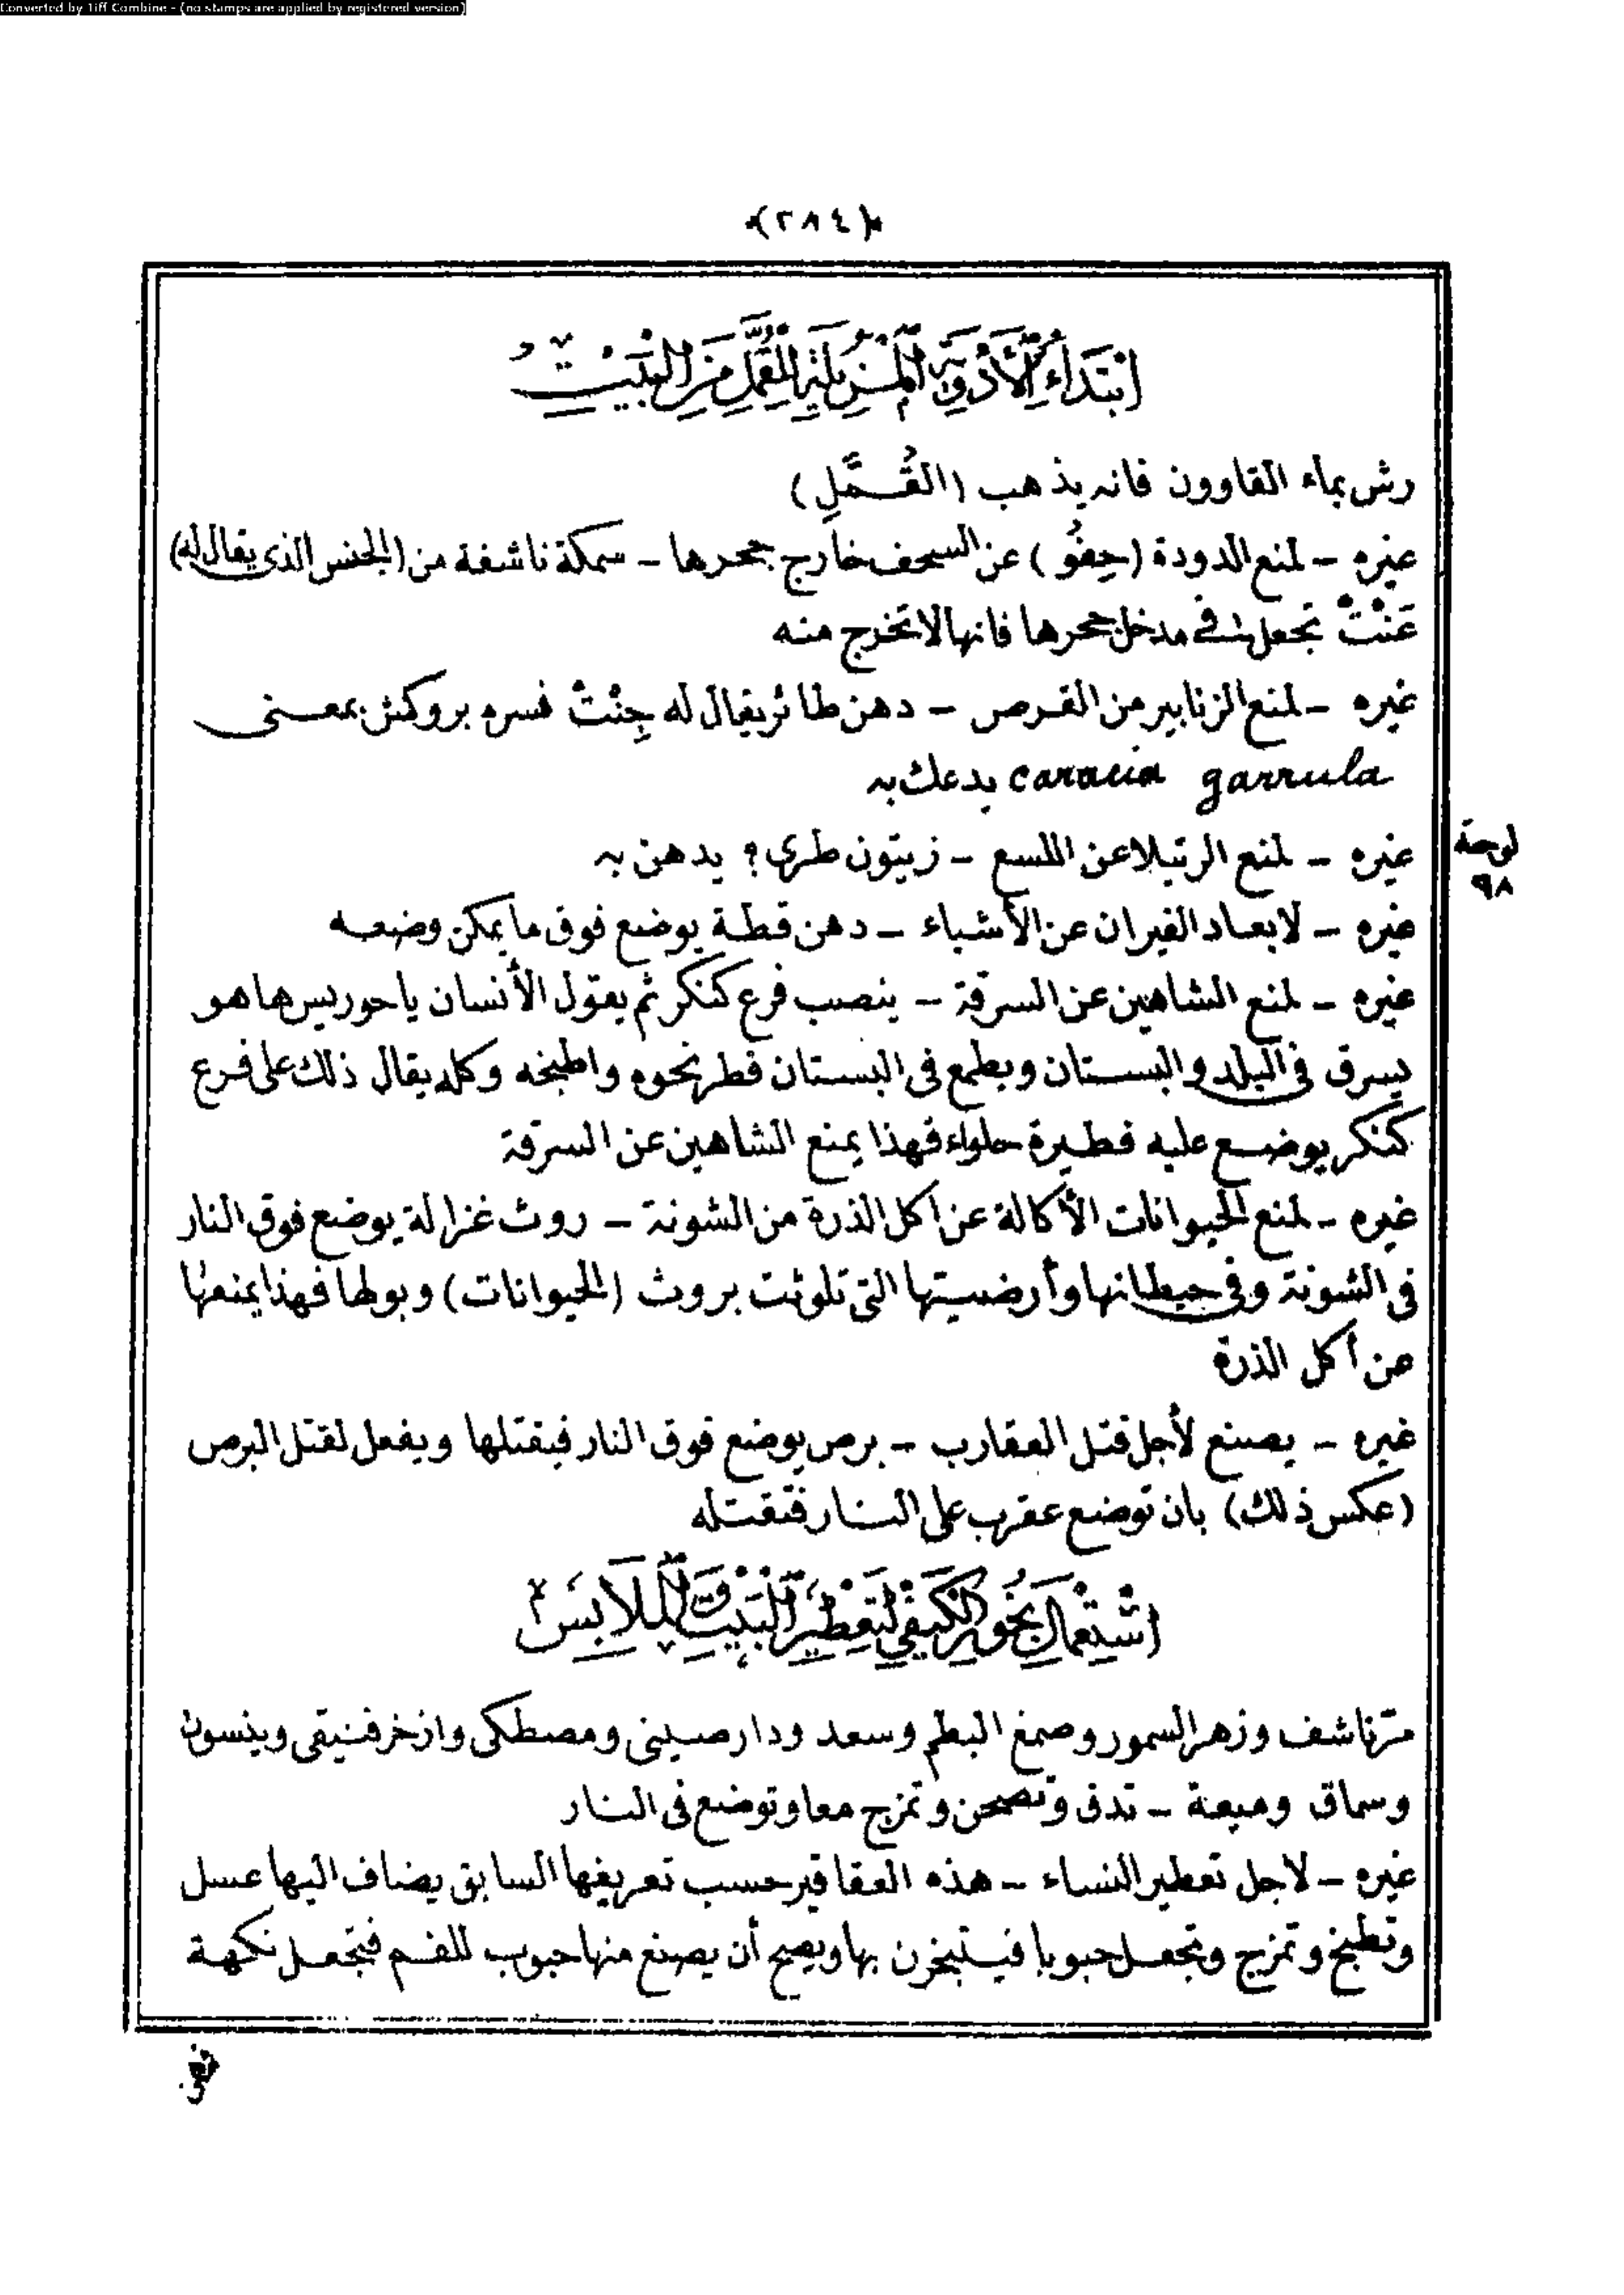 Converted by Tiff Combine - (no stamps are applied by registered version)
(٢٨٤)
ابتداء الأدوية المزيلة للقمل من البيت
رش بماء القاوون فانه يذهب (القُمَّل)
غيره – لمنع الدودة (حِفَوُ) عن السحف خارج جحرها – سمكة ناشفة من (الجنس الذى يقال له)
عَنْتْ تجعل فى مدخل جحرها فانها لا تخرج منه
غيره – لمنع الزنابير من القرص – دهن طائر يقال له جِنْتْ فسره بروكش بمعنى
caracia garrula يدعك به
غيره – لمنع الرتيلا عن اللسع – زيتون طرى ؟ يدهن به
لوحة
٩٨
غيره – لابعاد الفيران عن الأشياء – دهن قطة يوضع فوق ما يمكن وضعه
غيره – لمنع الشاهين عن السرقة – ينصب فرع كنكر ثم يقول الأنسان يا حوريس ها هو
يسرق فى البلد والبستان ويطمع فى البستان فطر نحوه واطبخه وكله يقال ذلك على فرع
كنكر يوضع عليه فطيرة حلواء فهذا يمنع الشاهين عن السرقة
غيره – لمنع الحيوانات الأكالة عن اكل الذرة من الشونة – روث غزالة يوضع فوق النار
فى الشونة وفى حيطانها وأرضيتها التى تلوثت بروث (الحيوانات) وبولها فهذا يمنعها
عن أكل الذرة
غيره – يصنع لأجل قتل العقارب – برص يوضع فوق النار فيقتلها ويفعل لقتل البرص
(عكس ذلك) بان توضع عقرب على النار فتقتله
استعمال بخور الكيفى لتعطير البيت والملابس
مرّ ناشف وزهر السمور وصمغ البطم وسعد ودارصينى ومصطكى وازخر فنيقى وينسون
وسماق وميعة – تدق وتصحن وتمزج معا وتوضع فى النار
غيره – لاجل تعطير النساء – هذه العقاقير حسب تعريفها السابق يضاف اليها عسل
وتطبخ وتمزج وتجعل حبوبا فيتبخرن بها ويصح أن يصنع منها حبوب للفم فتجعل نكهة